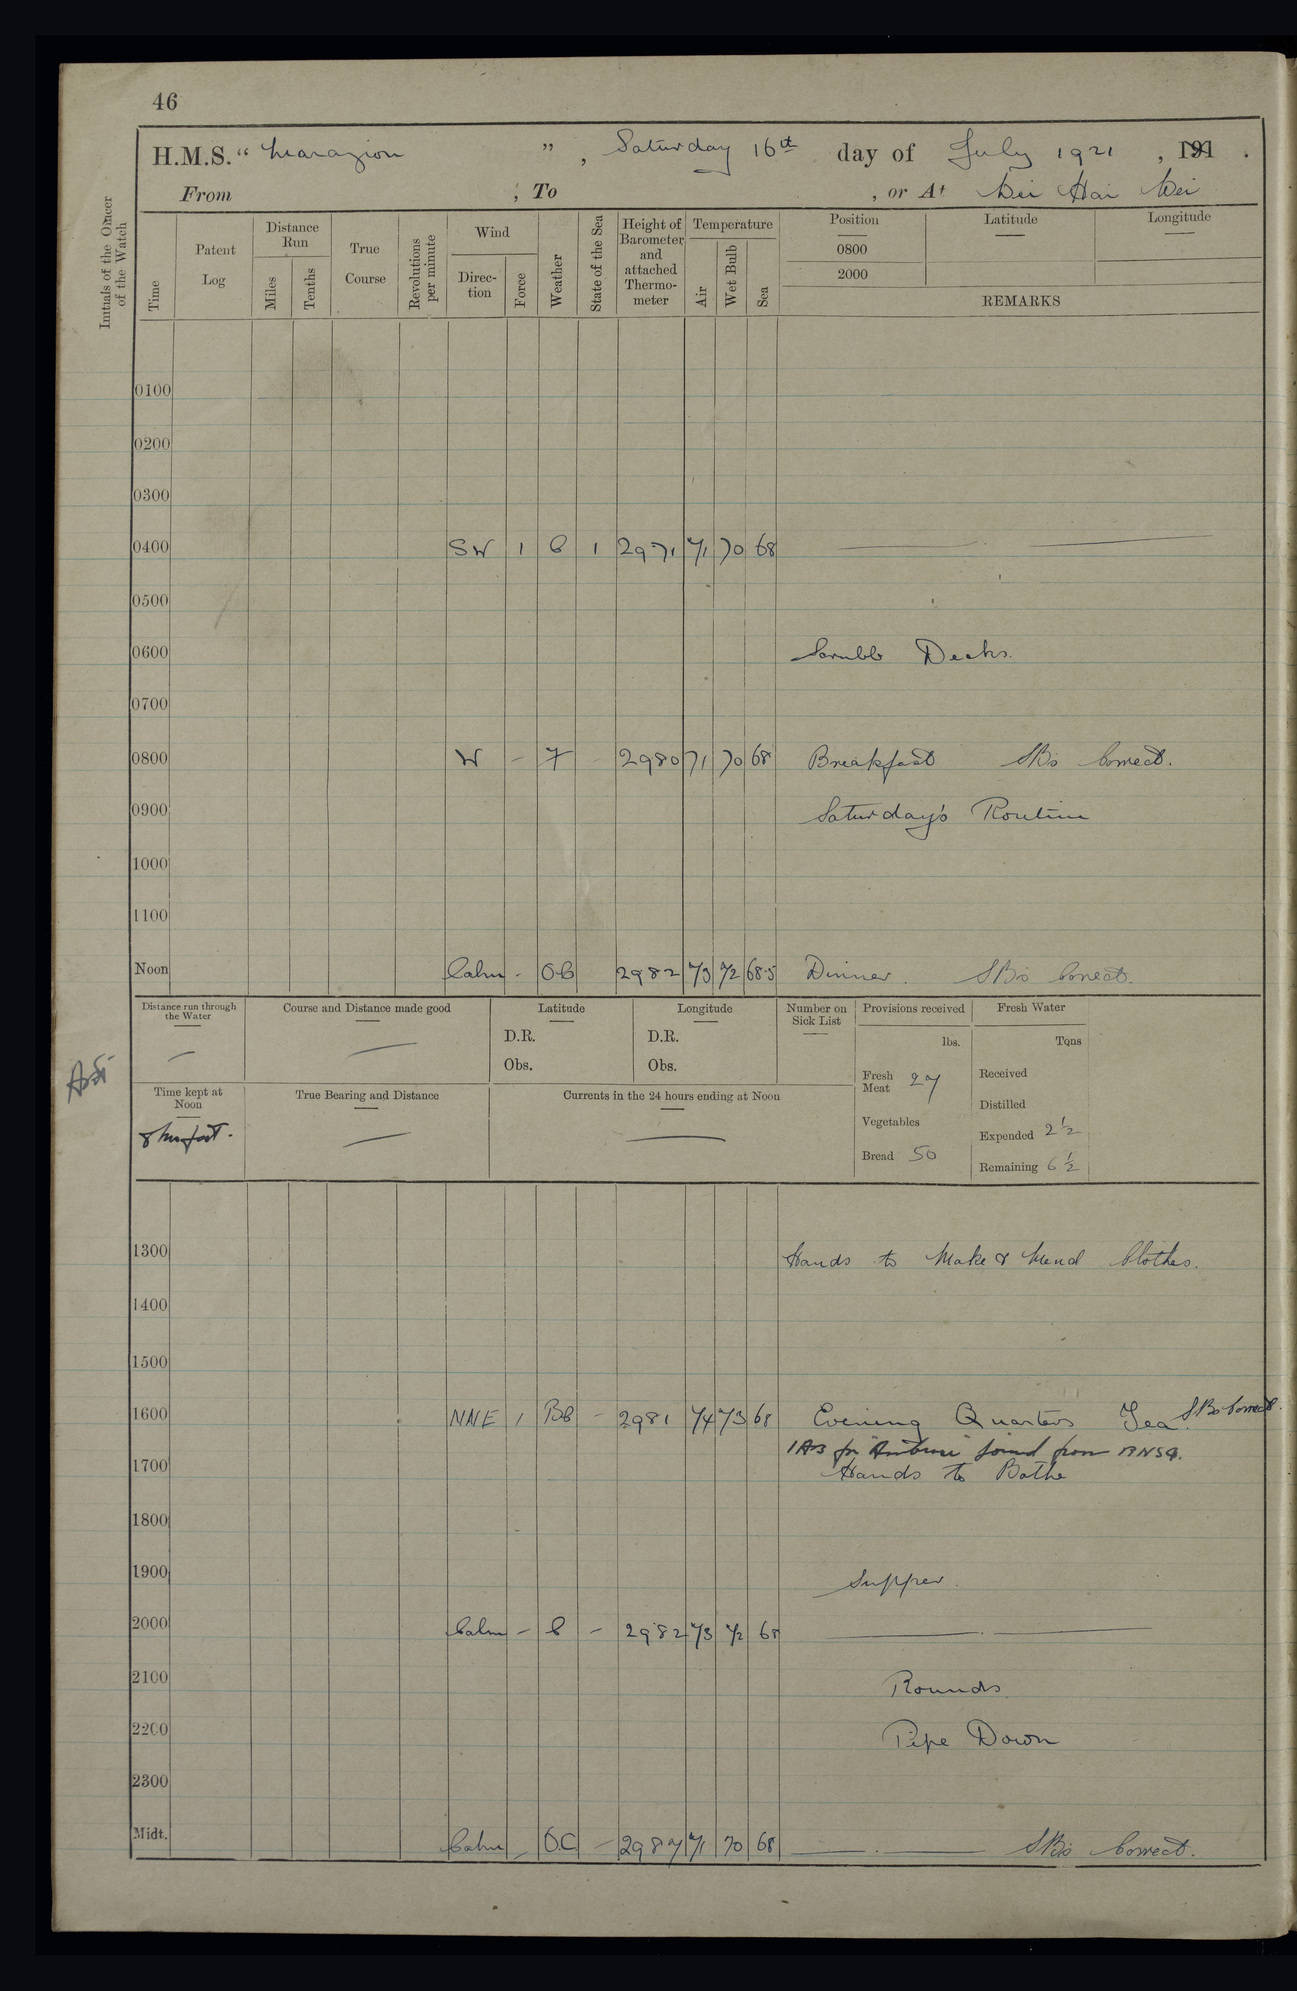 46
H.M.S. "Marazion", Saturday 16th day of July 1921, 191.
From ; To , or At Wei Hai Wei
Initials of the Officer of the Watch
Time
Patent Log
Distance Run
Miles
Tenths
True Course
Revolutions per minute
Wind
Direction
Force
Weather
State of the Sea
Height of Barometer and attached Thermometer
Temperature
Air
Wet Bulb
Sea
Position Latitude Longitude
0800
2000
REMARKS
0100
0200
0300
0400 SW 1 C 1 2971 71 70 68
0500
0600 Scrubb Decks.
0700
0800 W - 7 - 2980 71 70 68 Breakfast SBs Correct.
0900 Saturday's Routine
1000
1100
Noon Calm - OC 2982 73 72 68.5 Dinner. SBs Correct.
Distance run through the Water
Course and Distance made good
Latitude
D.R.
Obs.
Longitude
D.R.
Obs.
Number on Sick List
Provisions received
lbs.
Fresh Meat 27
Vegetables
Bread 50
Fresh Water
Tons
Received
Distilled
Expended 2 1/2
Remaining 6 1/2
Time kept at Noon
8 hrs fast.
True Bearing and Distance
Currents in the 24 hours ending at Noon
1300 Hands to Make & Mend Clothes.
1400
1500
1600 NNE 1 BC - 2981 74 73 68 Evening Quarters Tea. SBs Correct.
1 AB for joined from RNSQ.
1700 Hands to Bathe
1800
1900 Supper.
2000 Calm - C - 2982 73 72 68
2100 Rounds
2200 Pipe Down
2300
Midt. Calm - O.C - 2987 71 70 68 SBs Correct.